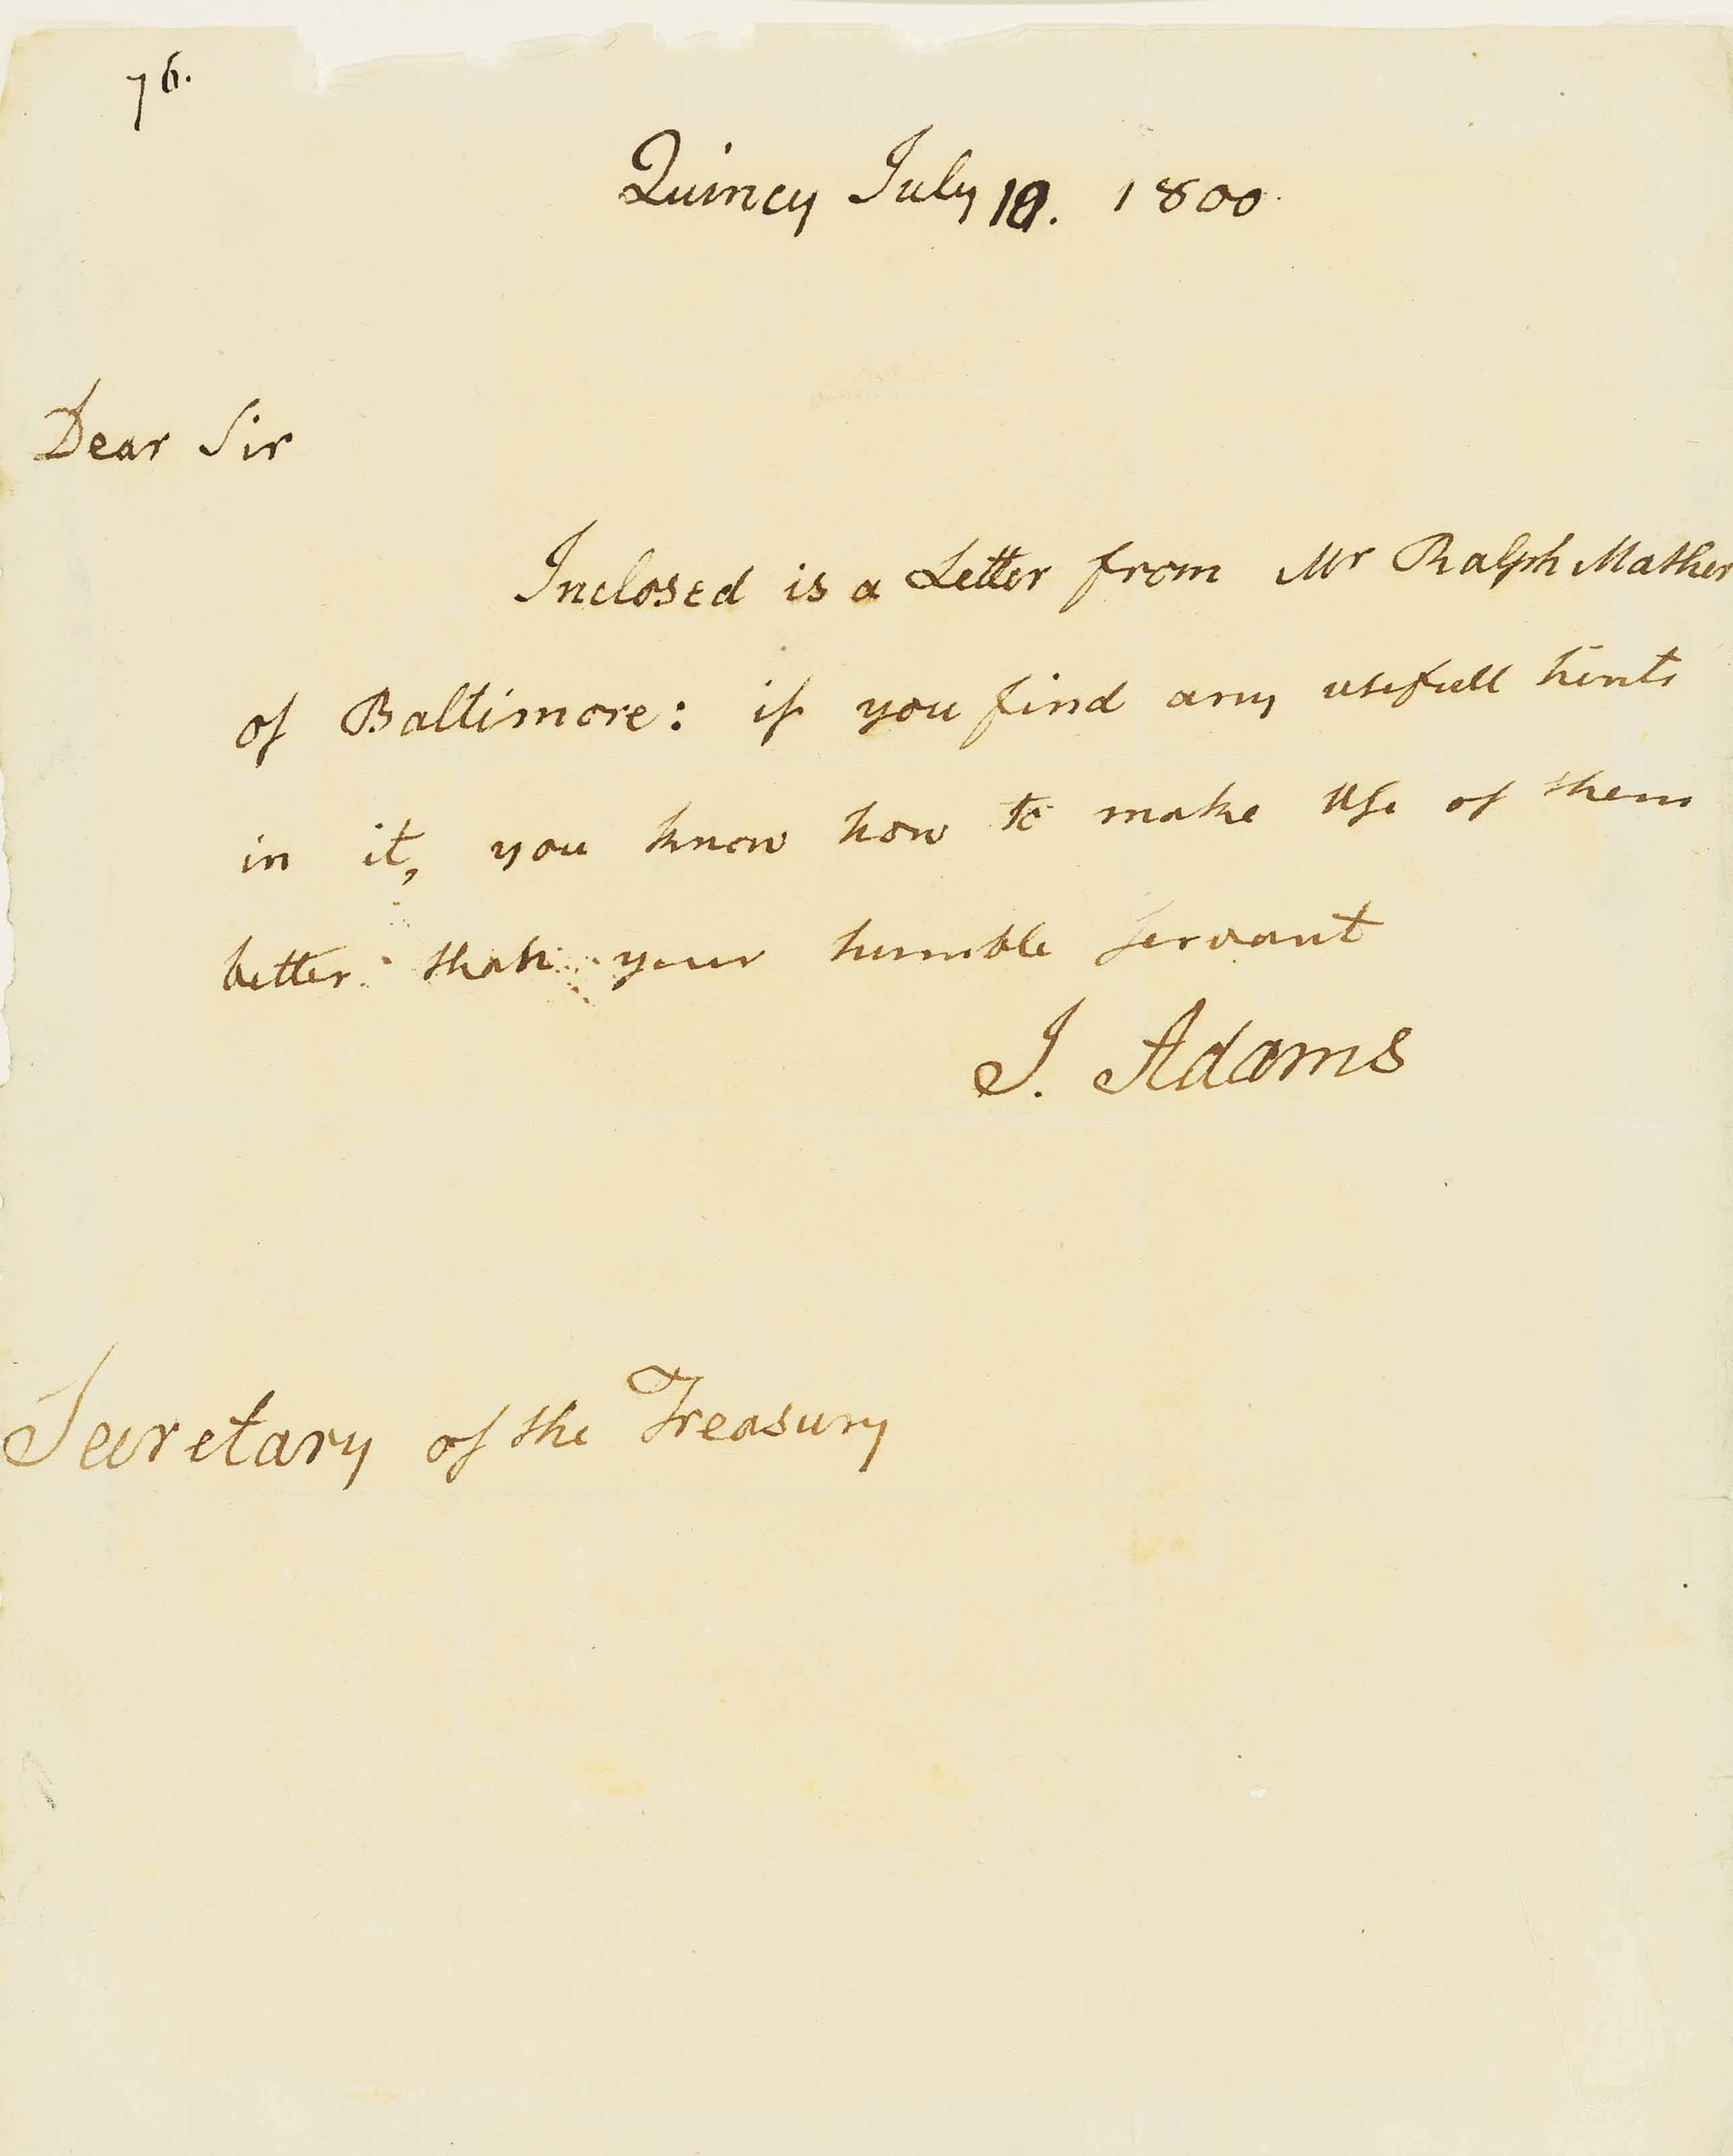 76.
Quincy July 10. 1800.
Dear Sir
Inclosed is a Letter from Mr Ralph Mather
of Baltimore: if you find any usefull hints
in it, you know how to make Use of them
better than your humble servant
J. Adams
Secretary of the Treasury